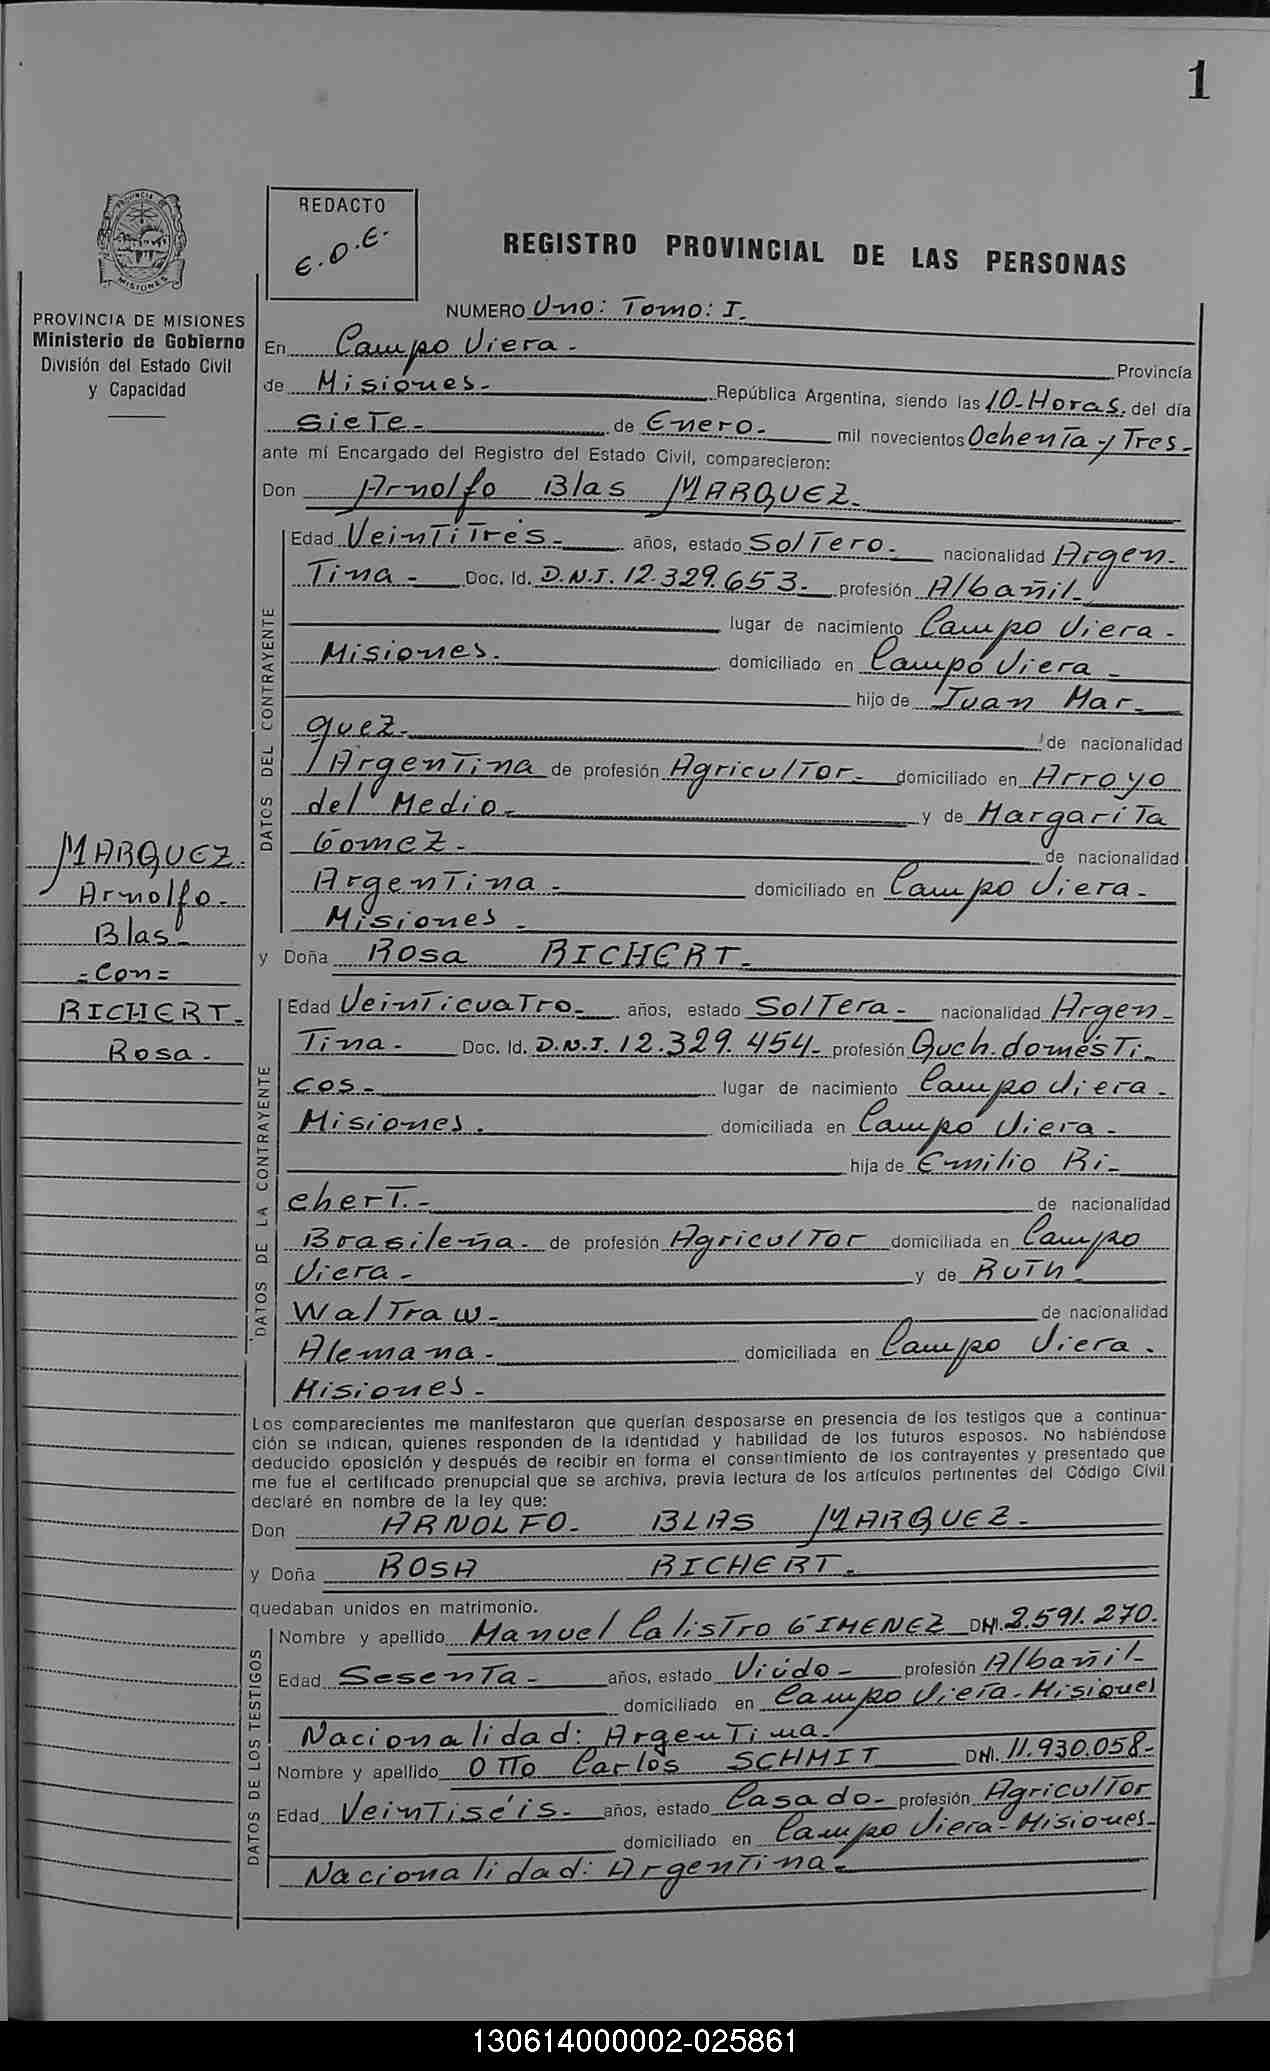 1
REDACTO
E.O.E.
REGISTRO PROVINCIAL DE LAS PERSONAS
MISIONES
PROVINCIA DE MISIONES
Ministerio de Gobierno
División del Estado Civil
y Capacidad
NUMERO Uno: Tomo: I.
En Campo Viera.- Provincia
de Misiones.- República Argentina, siendo las 10-Horas. del día
Siete.- de Enero.- mil novecientos Ochenta y Tres.-
ante mí Encargado del Registro del Estado Civil, comparecieron:
Don Arnolfo Blas MARQUEZ.-
DATOS DEL CONTRAYENTE
Edad Veintitres.- años, estado Soltero.- nacionalidad Argen-
tina.- Doc. Id. D.N.I. 12.329.653.- profesión Albañil.-
lugar de nacimiento Campo Viera.-
Misiones.- domiciliado en Campo Viera.-
hijo de Juan Mar-
quez.- de nacionalidad
Argentina de profesión Agricultor.- domiciliado en Arroyo
del Medio.- y de Margarita
Gomez.- de nacionalidad
Argentina.- domiciliado en Campo Viera.-
Misiones.-
MARQUEZ.
Arnolfo.-
Blas-
=Con=
RICHERT.-
Rosa.-
y Doña Rosa RICHERT.-
DATOS DE LA CONTRAYENTE
Edad Veinticuatro.- años, estado Soltera.- nacionalidad Argen-
tina.- Doc. Id. D.N.I. 12.329.454.- profesión Quch. domésti-
cos.- lugar de nacimiento Campo Viera.-
Misiones.- domiciliada en Campo Viera.-
hija de Emilio Ri-
chert.- de nacionalidad
Brasileña.- de profesión Agricultor domiciliada en Campo
Viera.- y de Ruth
Waltraw.- de nacionalidad
Alemana.- domiciliada en Campo Viera.
Misiones.-
Los comparecientes me manifestaron que querían desposarse en presencia de los testigos que a continua-
ción se indican, quienes responden de la identidad y habilidad de los futuros esposos. No habiéndose
deducido oposición y después de recibir en forma el consentimiento de los contrayentes y presentado que
me fue el certificado prenupcial que se archiva, previa lectura de los artículos pertinentes del Código Civil
declaré en nombre de la ley que:
Don ARNOLFO.- BLAS MARQUEZ.-
y Doña ROSA RICHERT.-
quedaban unidos en matrimonio.
DATOS DE LOS TESTIGOS
Nombre y apellido Manuel Calistro GIMENEZ DNI. 2.591.270.
Edad Sesenta.- años, estado Viúdo.- profesión Albañil-
domiciliado en Campo Viera-Misiones
Nacionalidad: Argentina.-
Nombre y apellido Otto Carlos SCHMIT DNI. 11.930.058-
Edad Veintiséis.- años, estado Casado.- profesión Agricultor
domiciliado en Campo Viera-Misiones-
Nacionalidad: Argentina.-
130614000002-025861